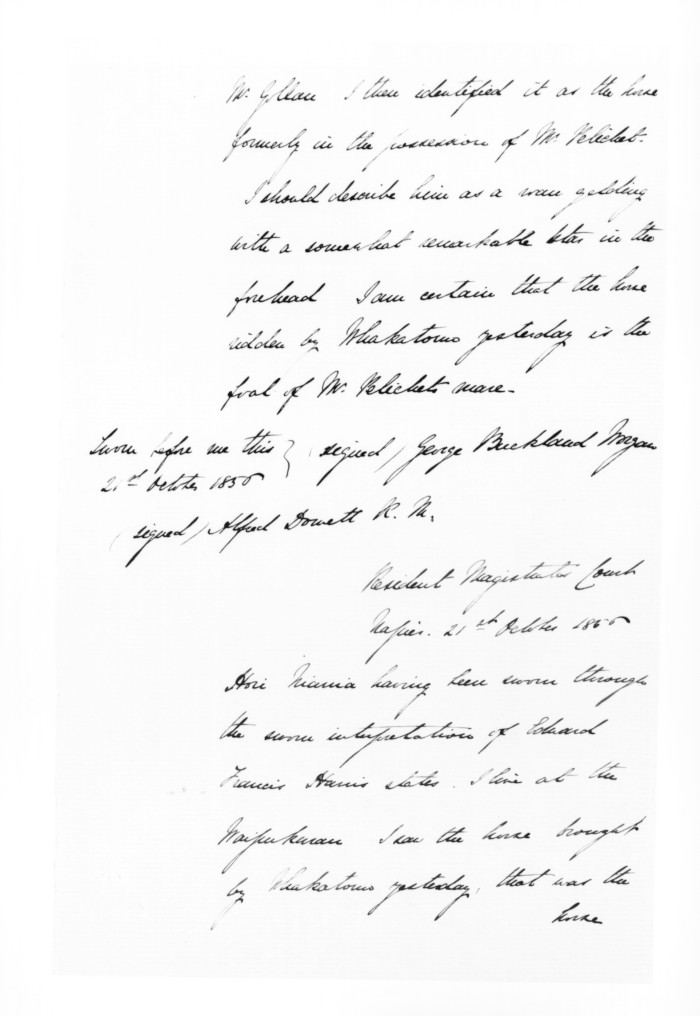 Mr. Gollan I then identified it as the horse
formerly in the possession of Mr.
I should describe him as a roan gelding
with a somewhat remarkable star in the
forehead I am certain that the horse
ridden by Whakatomo yesterday is the
foal of Mr. mare -
Sworn before me this } (signed) George Buckland Worgan
21st October 1856
(signed) Alfred Domett R. M.
Resident Magistrates Court
Napier. 21st October 1856
Hori Niania having been sworn through
the sworn interpretation of Edward
Francis Harris states. I live at the
Waipukurau I saw the horse brought
by Whakatomo yesterday, that was the
horse